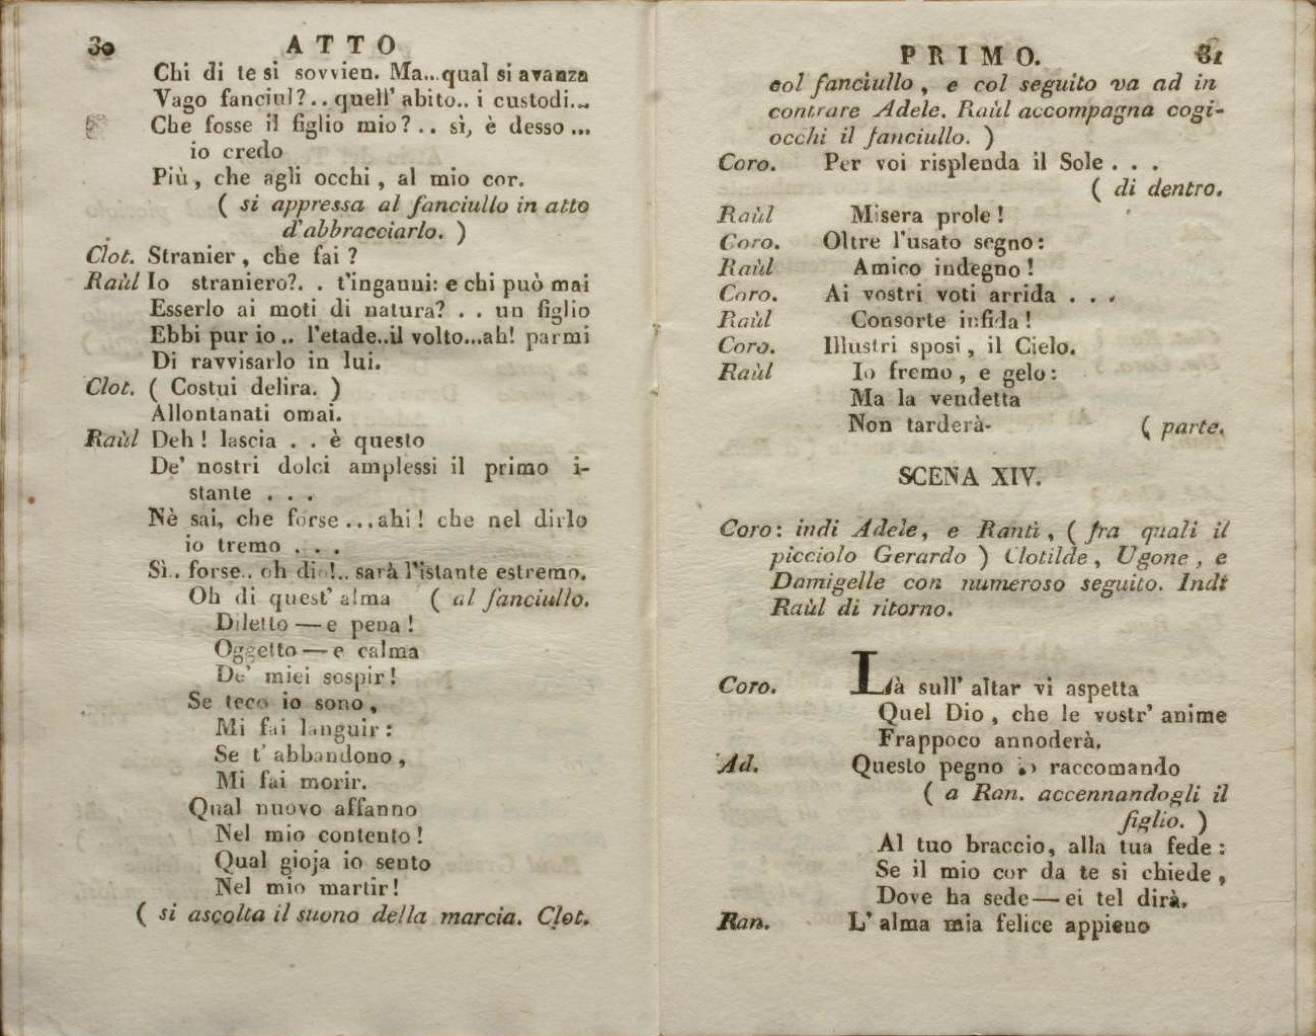 30 ATTO
Chi di te si sovvien. Ma...qual si avanza
Vago fanciul?.. quell' abito.. i custodi...
Che fosse il figlio mio? .. sì, è desso ...
io credo
Più, che agli occhi, al mio cor.
( si appressa al fanciullo in atto
d'abbracciarlo. )
Clot. Stranier, che fai ?
Raùl Io straniero?. . t'inganni: e chi può mai
Esserlo ai moti di natura? . . un figlio
Ebbi pur io .. l'etade..il volto...ah! parmi
Di ravvisarlo in lui.
Clot. ( Costui delira. )
Allontanati omai.
Raùl Deh ! lascia . . è questo
De' nostri dolci amplessi il primo i-
stante . . .
Nè sai, che forse ...ahi ! che nel dirlo
io tremo . . .
Sì.. forse.. oh dio!.. sarà l'istante estremo.
Oh di quest' alma ( al fanciullo.
Diletto — e pena !
Oggetto — e calma
De' miei sospir !
Se teco io sono,
Mi fai languir :
Se t' abbandono,
Mi fai morir.
Qual nuovo affanno
Nel mio contento !
Qual gioja io sento
Nel mio martir !
( si ascolta il suono della marcia. Clot.
PRIMO. 31
col fanciullo, e col seguito va ad in
contrare Adele. Raùl accompagna cogi-
occhi il fanciullo. )
Coro. Per voi risplenda il Sole . . .
( di dentro.
Raùl Misera prole !
Coro. Oltre l'usato segno :
Raùl Amico indegno !
Coro. Ai vostri voti arrida . . .
Raùl Consorte infida !
Coro. Illustri sposi, il Cielo.
Raùl Io fremo, e gelo :
Ma la vendetta
Non tarderà- ( parte.
SCENA XIV.
Coro: indi Adele, e Ranti, ( fra quali il
picciolo Gerardo ) Clotilde, Ugone, e
Damigelle con numeroso seguito. Indi
Raùl di ritorno.
Coro. Là sull' altar vi aspetta
Quel Dio, che le vostr' anime
Frappoco annoderà.
Ad. Questo pegno raccomando
( a Ran. accennandogli il
figlio. )
Al tuo braccio, alla tua fede :
Se il mio cor da te si chiede,
Dove ha sede — ei tel dirà.
Ran. L' alma mia felice appieno